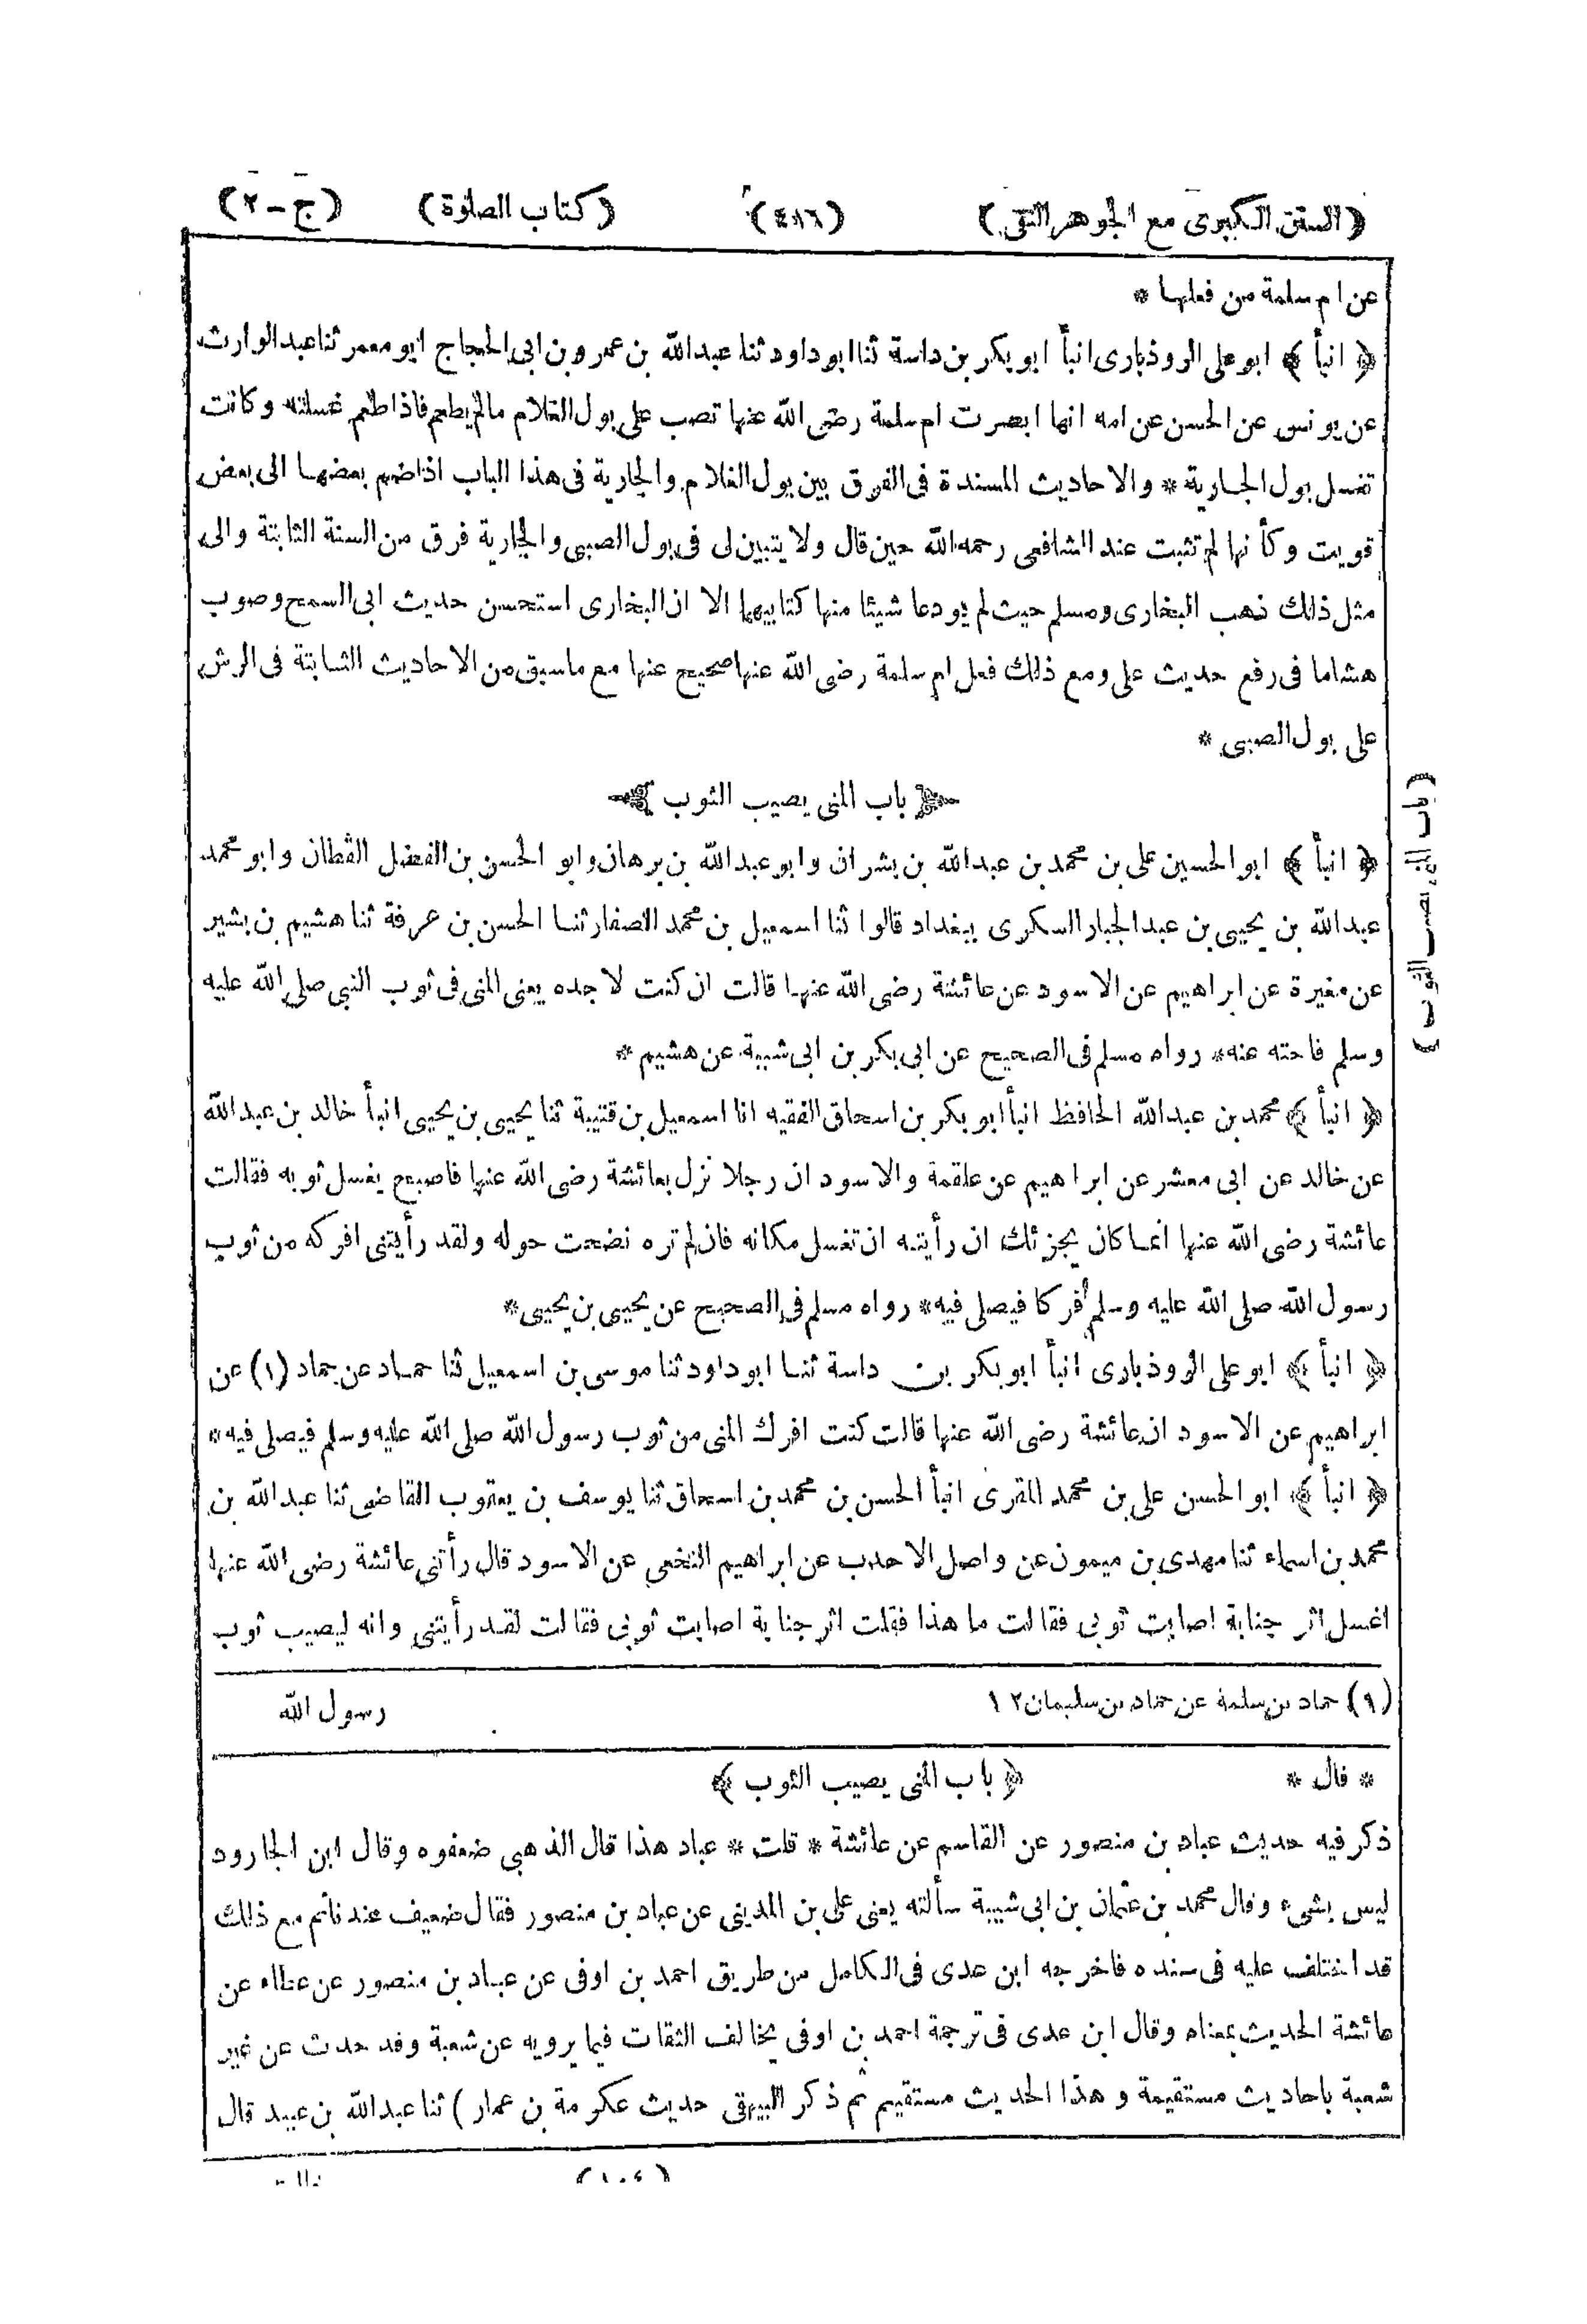 (السنن الكبرى مع الجوهر النقى) (٤١٦) (كتاب الصلوة) (ج - ٢)
عن ام سلمة من فعلها *
﴿ انبأ ﴾ ابو على الروذبارى انبأ ابو بكر بن داسة ثنا ابو داود ثنا عبد الله بن عمرو بن ابى الحجاج ابو معمر ثنا عبد الوارث
عن يونس عن الحسن عن امه انها ابصرت ام سلمة رضى الله عنها تصب على بول الغلام مالم يطعم فاذا طعم غسلته وكانت
تغسل بول الجارية * والاحاديث المسندة فى الفرق بين بول الغلام والجارية فى هذا الباب اذا ضم بعضها الى بعض
قويت وكأنها لم تثبت عند الشافعى رحمه الله حين قال ولا يتبين لى فى بول الصبى والجارية فرق من السنة الثابتة والى
مثل ذلك ذهب البخارى ومسلم حيث لم يودعا شيئا منها كتابيهما الا ان البخارى استحسن حديث ابى السمح وصوب
هشاما فى رفع حديث على ومع ذلك فعل ام سلمة رضى الله عنها صحيح عنها مع ما سبق من الاحاديث الثابتة فى الرش
على بول الصبى *
باب المنى يصيب الثوب
(باب المنى يصيب الثوب)
﴿ انبأ ﴾ ابو الحسين على بن محمد بن عبد الله بن بشران وابو عبد الله بن برهان وابو الحسن بن الفضل القطان وابو محمد
عبد الله بن يحيى بن عبد الجبار السكرى ببغداد قالوا ثنا اسمعيل بن محمد الصفار ثنا الحسن بن عرفة ثنا هشيم بن بشير
عن مغيرة عن ابراهيم عن الاسود عن عائشة رضى الله عنها قالت ان كنت لاجده يعنى المنى فى ثوب النبى صلى الله عليه
وسلم فاحته عنه * رواه مسلم فى الصحيح عن ابى بكر بن ابى شيبة عن هشيم *
﴿ انبأ ﴾ محمد بن عبد الله الحافظ انبأ ابو بكر بن اسحاق الفقيه انا اسمعيل بن قتيبة ثنا يحيى بن يحيى انبأ خالد بن عبد الله
عن خالد عن ابى معشر عن ابراهيم عن علقمة والاسود ان رجلا نزل بعائشة رضى الله عنها فاصبح يغسل ثوبه فقالت
عائشة رضى الله عنها انما كان يجزئك ان رأيته ان تغسل مكانه فان لم تره نضحت حوله ولقد رأيتنى افركه من ثوب
رسول الله صلى الله عليه وسلم فركا فيصلى فيه * رواه مسلم فى الصحيح عن يحيى بن يحيى *
﴿ انبأ ﴾ ابو على الروذبارى انبأ ابو بكر بن داسة ثنا ابو داود ثنا موسى بن اسمعيل ثنا حماد عن حماد (١) عن
ابراهيم عن الاسود ان عائشة رضى الله عنها قالت كنت افرك المنى من ثوب رسول الله صلى الله عليه وسلم فيصلى فيه *
﴿ انبأ ﴾ ابو الحسن على بن محمد المقرى انبأ الحسن بن محمد بن اسحاق ثنا يوسف بن يعقوب القاضى ثنا عبد الله بن
محمد بن اسماء ثنا مهدى بن ميمون عن واصل الاحدب عن ابراهيم النخعى عن الاسود قال رأتنى عائشة رضى الله عنها
اغسل اثر جنابة اصابت ثوبى فقالت ما هذا فقلت اثر جنابة اصابت ثوبى فقالت لقد رأيتنى وانه ليصيب ثوب
(١) حماد بن سلمة عن حماد بن سليمان ١٢ رسول الله
* قال * ﴿ باب المنى يصيب الثوب ﴾
ذكر فيه حديث عباد بن منصور عن القاسم عن عائشة * قلت * عباد هذا قال الذهبى ضعفوه وقال ابن الجارود
ليس بشىء وقال محمد بن عثمان بن ابى شيبة سألته يعنى على بن المدينى عن عباد بن منصور فقال ضعيف عندنا ثم مع ذلك
قد اختلف عليه فى سنده فاخرجه ابن عدى فى الكامل من طريق احمد بن اوفى عن عباد بن منصور عن عطاء عن
عائشة الحديث بمعناه وقال ابن عدى فى ترجمة احمد بن اوفى يخالف الثقات فيما يرويه عن شعبة وقد حدث عن غير
شعبة باحاديث مستقيمة وهذا الحديث مستقيم ثم ذكر البيهقى حديث عكرمة بن عمار ) ثنا عبد الله بن عبيد قال
(١٠٤)